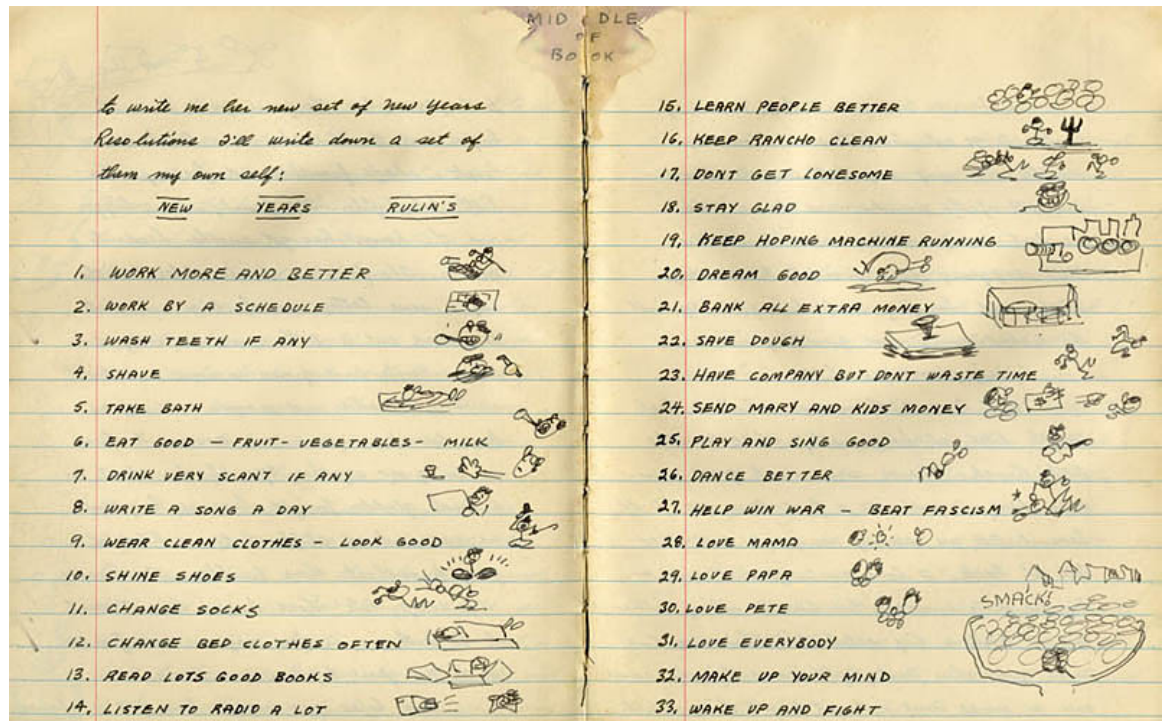 MIDDLE
OF
BOOK
to write me her new set of New Years
Resolutions I'll write down a set of
them my own self:
NEW YEARS RULIN'S
1. WORK MORE AND BETTER
2. WORK BY A SCHEDULE
3. WASH TEETH IF ANY
4. SHAVE
5. TAKE BATH
6. EAT GOOD — FRUIT - VEGETABLES - MILK
7. DRINK VERY SCANT IF ANY
8. WRITE A SONG A DAY
9. WEAR CLEAN CLOTHES — LOOK GOOD
10. SHINE SHOES
11. CHANGE SOCKS
12. CHANGE BED CLOTHES OFTEN
13. READ LOTS GOOD BOOKS
14. LISTEN TO RADIO A LOT
15. LEARN PEOPLE BETTER
16. KEEP RANCHO CLEAN
17. DONT GET LONESOME
18. STAY GLAD
19. KEEP HOPING MACHINE RUNNING
20. DREAM GOOD
21. BANK ALL EXTRA MONEY
22. SAVE DOUGH
23. HAVE COMPANY BUT DONT WASTE TIME
24. SEND MARY AND KIDS MONEY
25. PLAY AND SING GOOD
26. DANCE BETTER
27. HELP WIN WAR — BEAT FASCISM
28. LOVE MAMA
29. LOVE PAPA
SMACK!
30. LOVE PETE
31. LOVE EVERYBODY
32. MAKE UP YOUR MIND
33. WAKE UP AND FIGHT